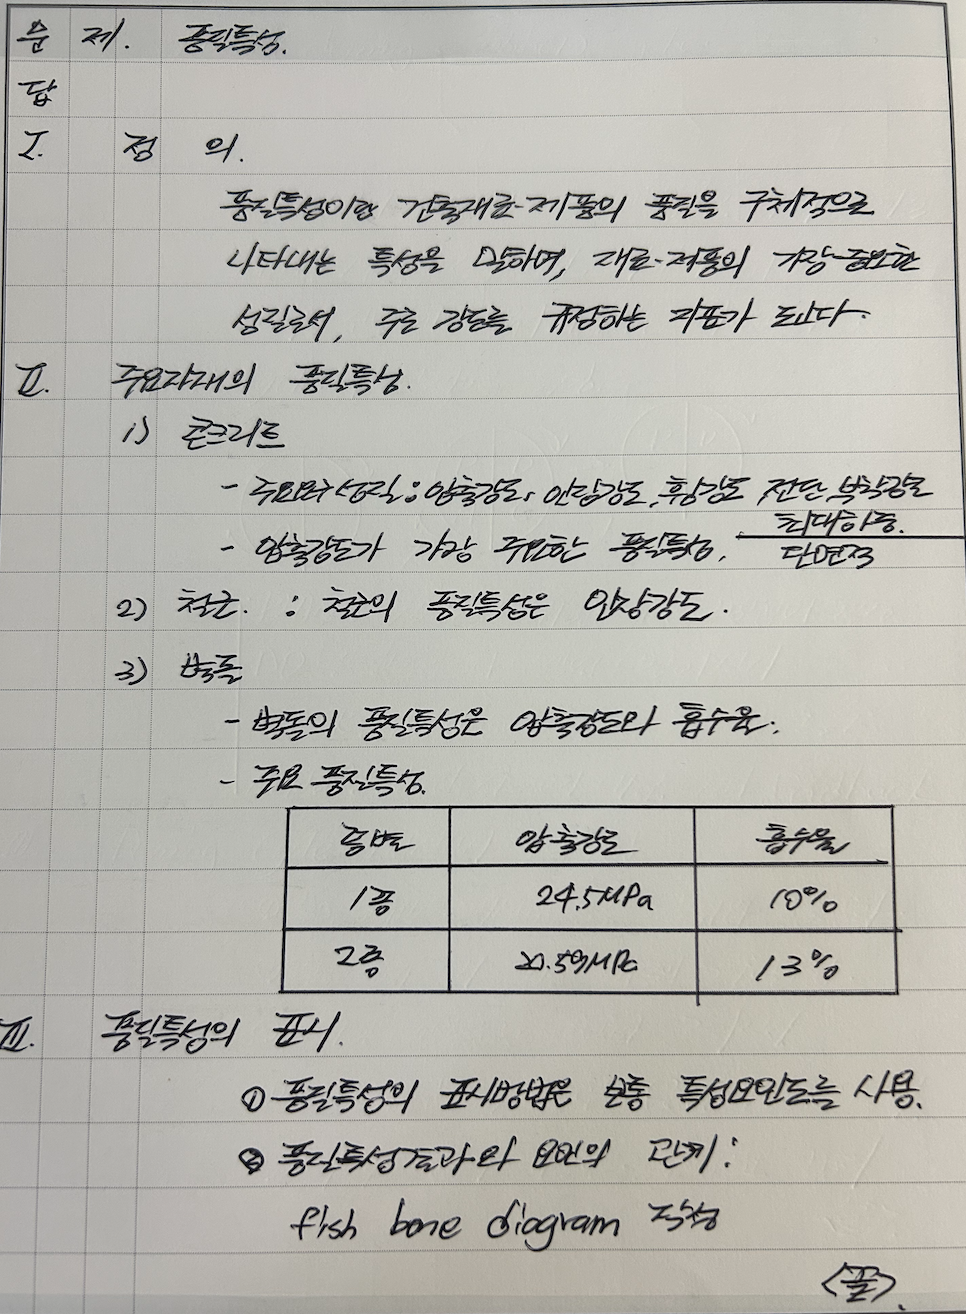 문 제. 품질특성.
답
I. 정 의.
품질특성이란 건축재료·제품의 품질을 구체적으로
나타내는 특성을 말하며, 재료·제품의 가장 중요한
성질로서, 주로 강도를 규정하는 지표가 된다.
II. 주요자재의 품질특성.
1) 콘크리트
- 주요 성질: 압축강도, 인장강도, 휨강도 전단, 부착강도
- 압축강도가 가장 주요한 품질특성, 최대하중
단면적
2) 철근. : 철근의 품질특성은 인장강도.
3) 벽돌
- 벽돌의 품질특성은 압축강도와 흡수율.
- 주요 품질특성.
종별 압축강도 흡수율
1종 24.5MPa 10%
2종 20.59MPa 13%
III. 품질특성의 표시.
① 품질특성의 표시방법은 보통 특성요인도를 사용.
② 품질특성결과와 요인의 관계:
fish bone diagram 작성
<끝>.